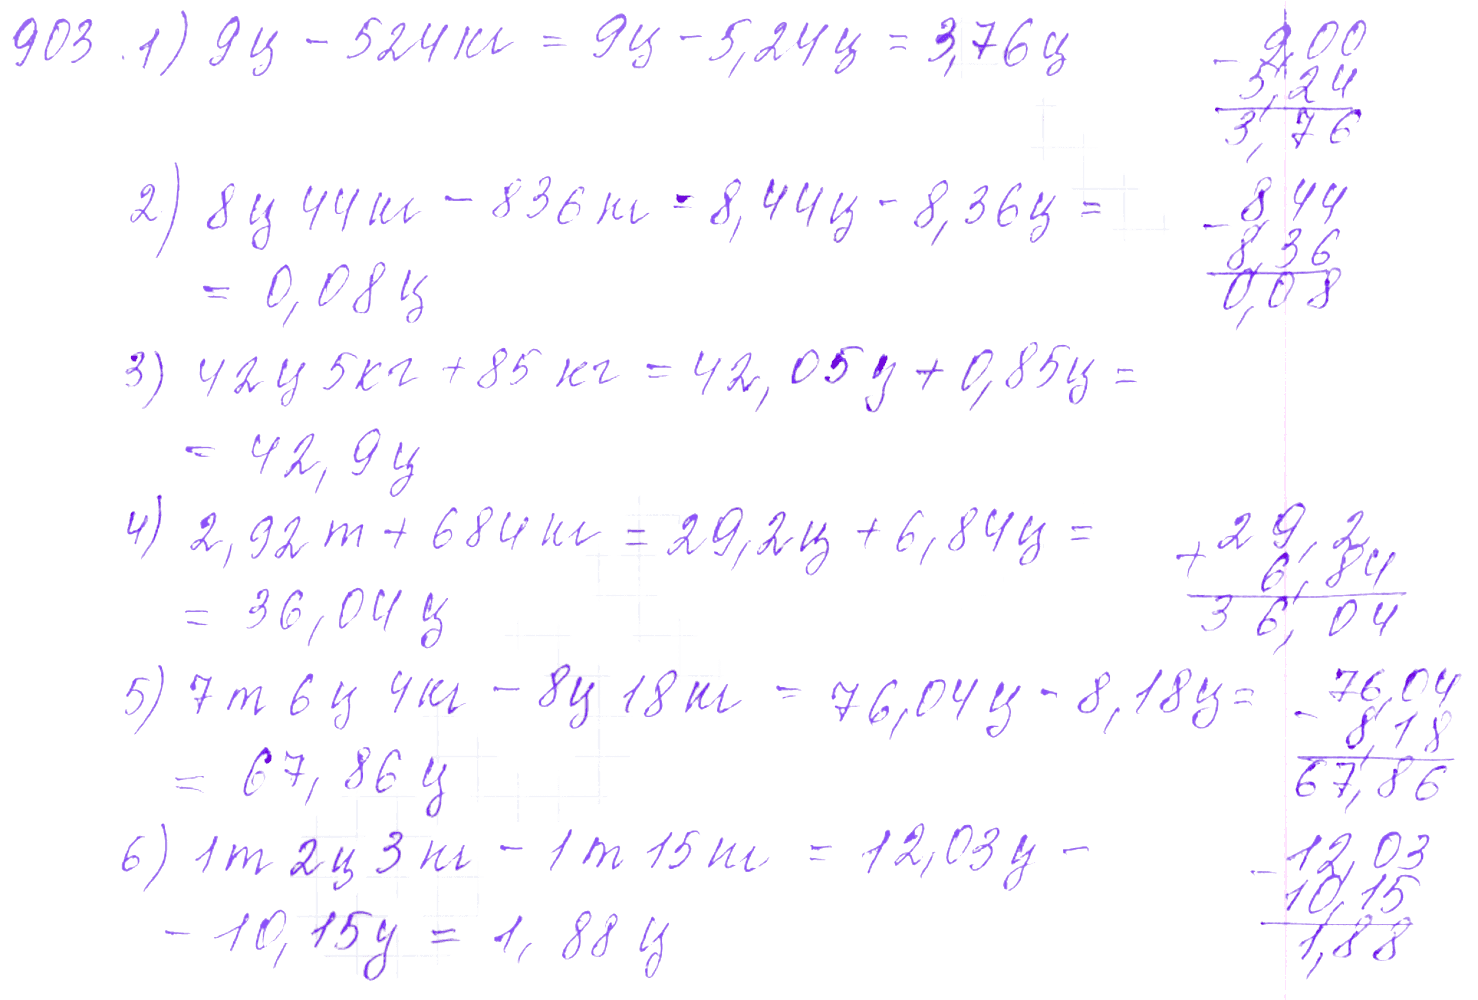 903. 1) 9ц - 524кг = 9ц - 5,24ц = 3,76ц
- 9,00
5,24
3,76
2) 8ц 44кг - 836кг = 8,44ц - 8,36ц =
= 0,08ц
- 8,44
8,36
0,08
3) 42ц 5кг + 85кг = 42,05ц + 0,85ц =
= 42,9ц
4) 2,92т + 684кг = 29,2ц + 6,84ц =
= 36,04ц
+ 29,2
6,84
36,04
5) 7т 6ц 4кг - 8ц 18кг = 76,04ц - 8,18ц =
= 67,86ц
- 76,04
8,18
67,86
6) 1т 2ц 3кг - 1т 15кг = 12,03ц -
- 10,15ц = 1,88ц
- 12,03
10,15
1,88